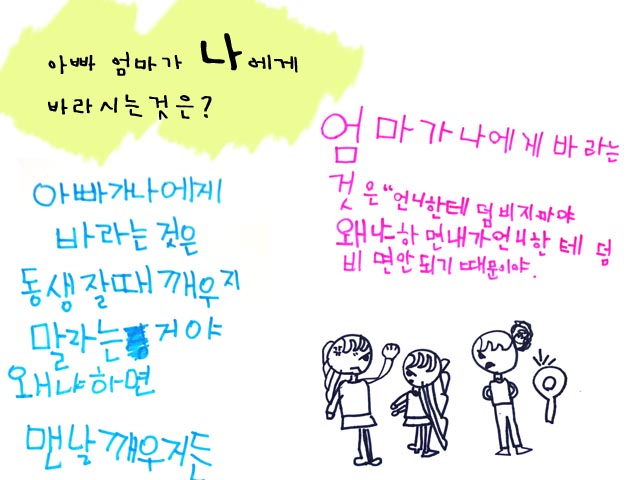 아빠 엄마가 나에게
바라시는것은?
아빠가나에게
바라는것은
동생잘때깨우지
말라는거야
왜냐하면
맨날깨우거든
엄마가나에게바라는
것은 "언니한테덤비지마야
왜냐하면내가언니한테덤
비면안되기때문이야.